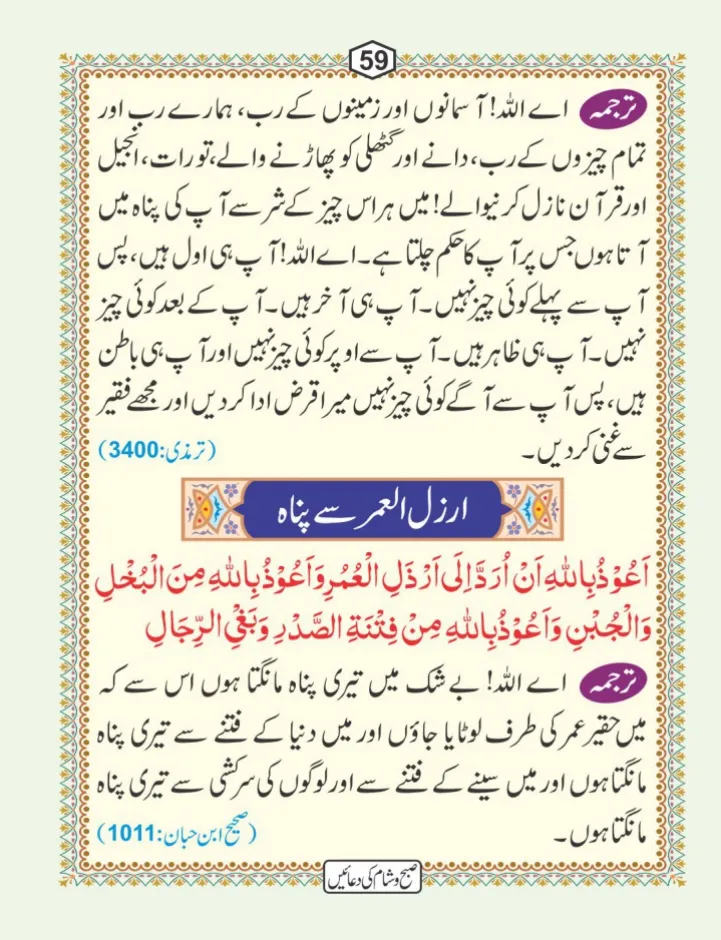 59
ترجمہ اے اللہ! آسمانوں اور زمینوں کے رب، ہمارے رب اور
تمام چیزوں کے رب، دانے اور گٹھلی کو پھاڑنے والے، تورات، انجیل
اور قرآن نازل کرنیوالے! میں ہر اس چیز کے شر سے آپ کی پناہ میں
آتا ہوں جس پر آپ کا حکم چلتا ہے۔ اے اللہ! آپ ہی اول ہیں، پس
آپ سے پہلے کوئی چیز نہیں۔ آپ ہی آخر ہیں۔ آپ کے بعد کوئی چیز
نہیں۔ آپ ہی ظاہر ہیں۔ آپ سے اوپر کوئی چیز نہیں اور آپ ہی باطن
ہیں، پس آپ سے آگے کوئی چیز نہیں میرا قرض ادا کردیں اور مجھے فقیر
سے غنی کردیں۔ (ترمذی:3400)
ارزل العمر سے پناہ
اَعُوْذُ بِاللهِ اَنْ اُرَدَّ اِلَى اَرْذَلِ الْعُمُرِ وَاَعُوْذُ بِاللهِ مِنَ الْبُخْلِ
وَالْجُبْنِ وَاَعُوْذُ بِاللهِ مِنْ فِتْنَةِ الصَّدْرِ وَبَغْيِ الرِّجَالِ
ترجمہ اے اللہ! بے شک میں تیری پناہ مانگتا ہوں اس سے کہ
میں حقیر عمر کی طرف لوٹایا جاؤں اور میں دنیا کے فتنے سے تیری پناہ
مانگتا ہوں اور میں سینے کے فتنے سے اور لوگوں کی سرکشی سے تیری پناہ
مانگتا ہوں۔ (صحیح ابن حبان:1011)
صبح و شام کی دعائیں